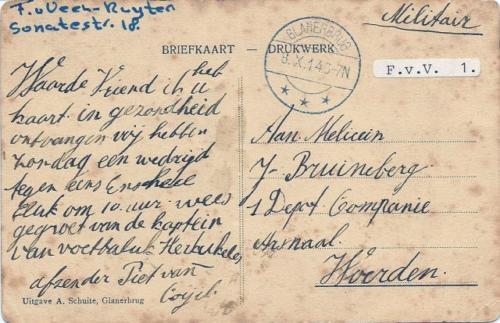 F. v Veen-Ruyten
Sonatestr. 18.
Militair
BRIEFKAART — DRUKWERK
GLANERBRUG
8.X.14 6-7N
F.v.V. 1.
Waarde Vriend ik heb u
kaart in gezondheid
ontvangen wij hebben
zondag een wedrijd
tegen eens Enschede
Elluk om 10. uur. wees
gegroet van de kaptein
van voetbalklub Herkules
afzender Piet van
Aan Melicien
J. Bruineberg
1 Depot Companie
Arsnaal.
Woerden.
Uitgave A. Schuite, Glanerbrug